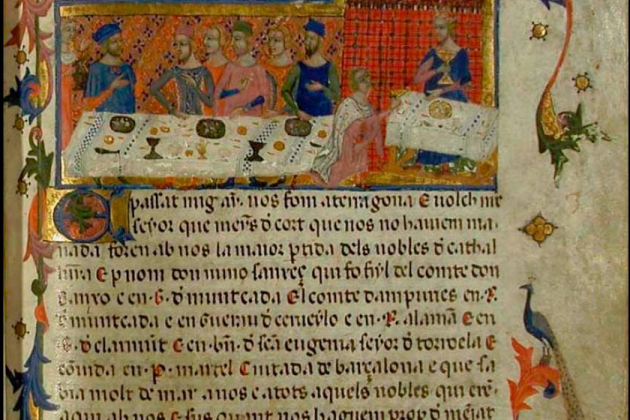 E passat mig ay· nos fom a terragona E volch nre
seyor que meyns đ cort que nos no hauiem ma
nada foren ab nos la maior ptida dels nobles đ cathal
unia E p nom don nuno sanxeç qui fo fiyl del comte don
Sanxo e en ·G· đ muntcada El comte dampuries en ·R·
đ muntcada e en Guerau đ cerueylo e en ·R· alamā E en
·G· đ claramūt E en bñ· đ scā eugenia seyor đ torroela E
conuida en ·P· martel Ciutada de barçalona e que sa
bia molt de mar a nos e a tots aquels nobles qui erē
aqui ab nos E sus quant nos haguem prop đ mējat